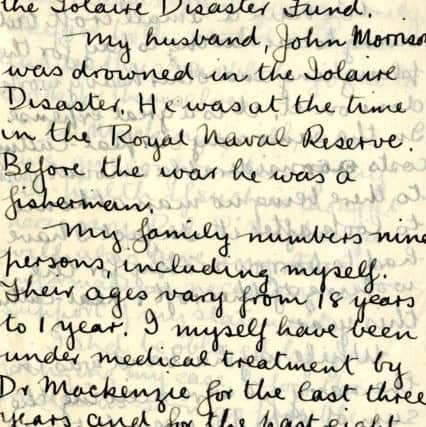 the Iolaire Disaster Fund.
My husband, John Morrison
was drowned in the Iolaire
Disaster. He was at the time
in the Royal Naval Reserve.
Before the war he was a
fisherman.
My family numbers nine
persons, including myself.
Their ages vary from 18 years
to 1 year. I myself have been
under medical treatment by
Dr Mackenzie for the last three
years and for the past eight